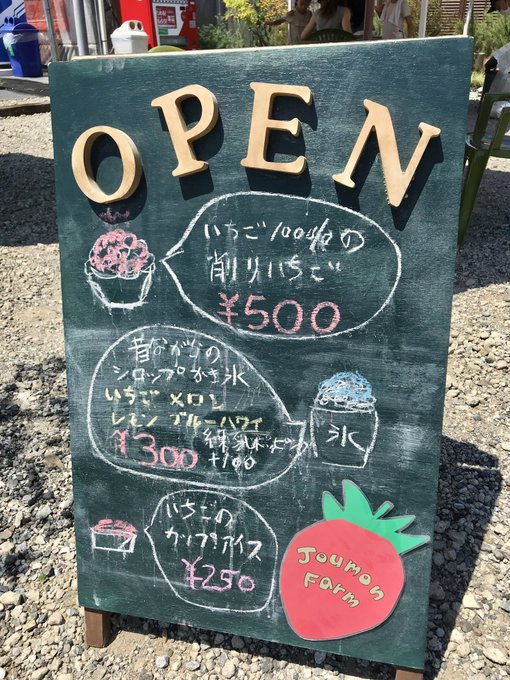 OPEN
いちご100%の
削りいちご
¥500
昔ながらの
シロップかき氷
いちご メロン
レモン ブルーハワイ
¥300
練乳トッピング
+100
氷
いちごの
カップアイス
¥250
Joumon
Farm